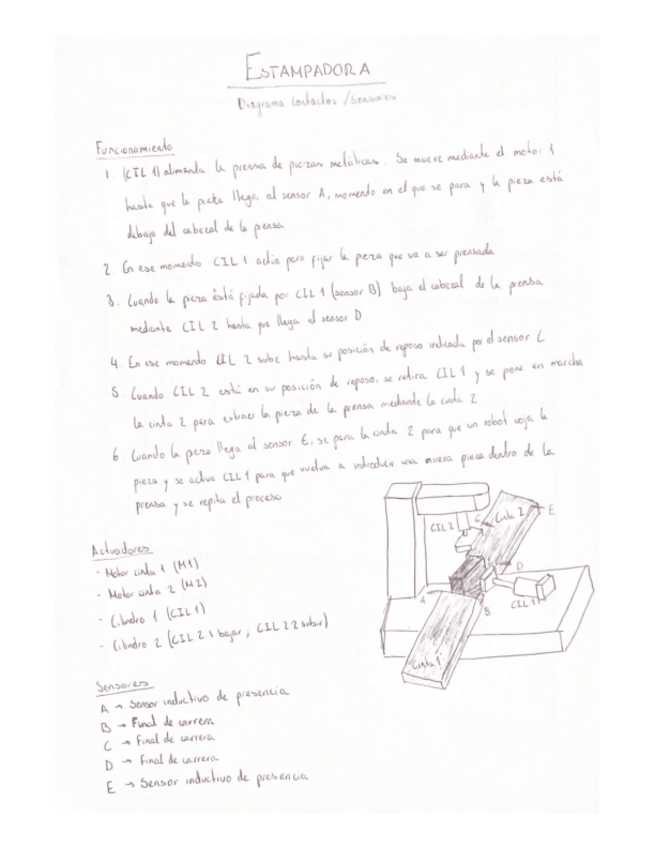 ESTAMPADORA
Diagrama Contactos / Sensores
Funcionamiento
1. (CIL 1) alimenta la prensa de piezas metálicas. Se mueve mediante el motor 1
hasta que la pieza llega al sensor A, momento en el que se para y la pieza está
debajo del cabezal de la prensa
2. En ese momento CIL 1 actúa para fijar la pieza que va a ser prensada
3. Cuando la pieza está fijada por CIL 1 (sensor B) baja el cabezal de la prensa
mediante CIL 2 hasta que llega al sensor D
4 En ese momento CIL 2 sube hasta su posición de reposo indicada por el sensor C
5. Cuando CIL 2 está en su posición de reposo, se retira CIL 1 y se pone en marcha
la cinta 2 para extraer la pieza de la prensa mediante la cinta 2
6 Cuando la pieza llega al sensor E, se para la cinta 2 para que un robot coja la
pieza y se active CIL 1 para que vuelva a introducir una nueva pieza dentro de la
prensa y se repita el proceso
CIL 2
C
Cinta 2
E
D
A
B
CIL 1
Cinta 1
Actuadores
- Motor cinta 1 (M1)
- Motor cinta 2 (M2)
- Cilindro 1 (CIL 1)
- Cilindro 2 (CIL 2.1 bajar ; CIL 2.2 subir)
Sensores
A → Sensor inductivo de presencia
B → Final de carrera
C → Final de carrera
D → Final de carrera
E → Sensor inductivo de presencia